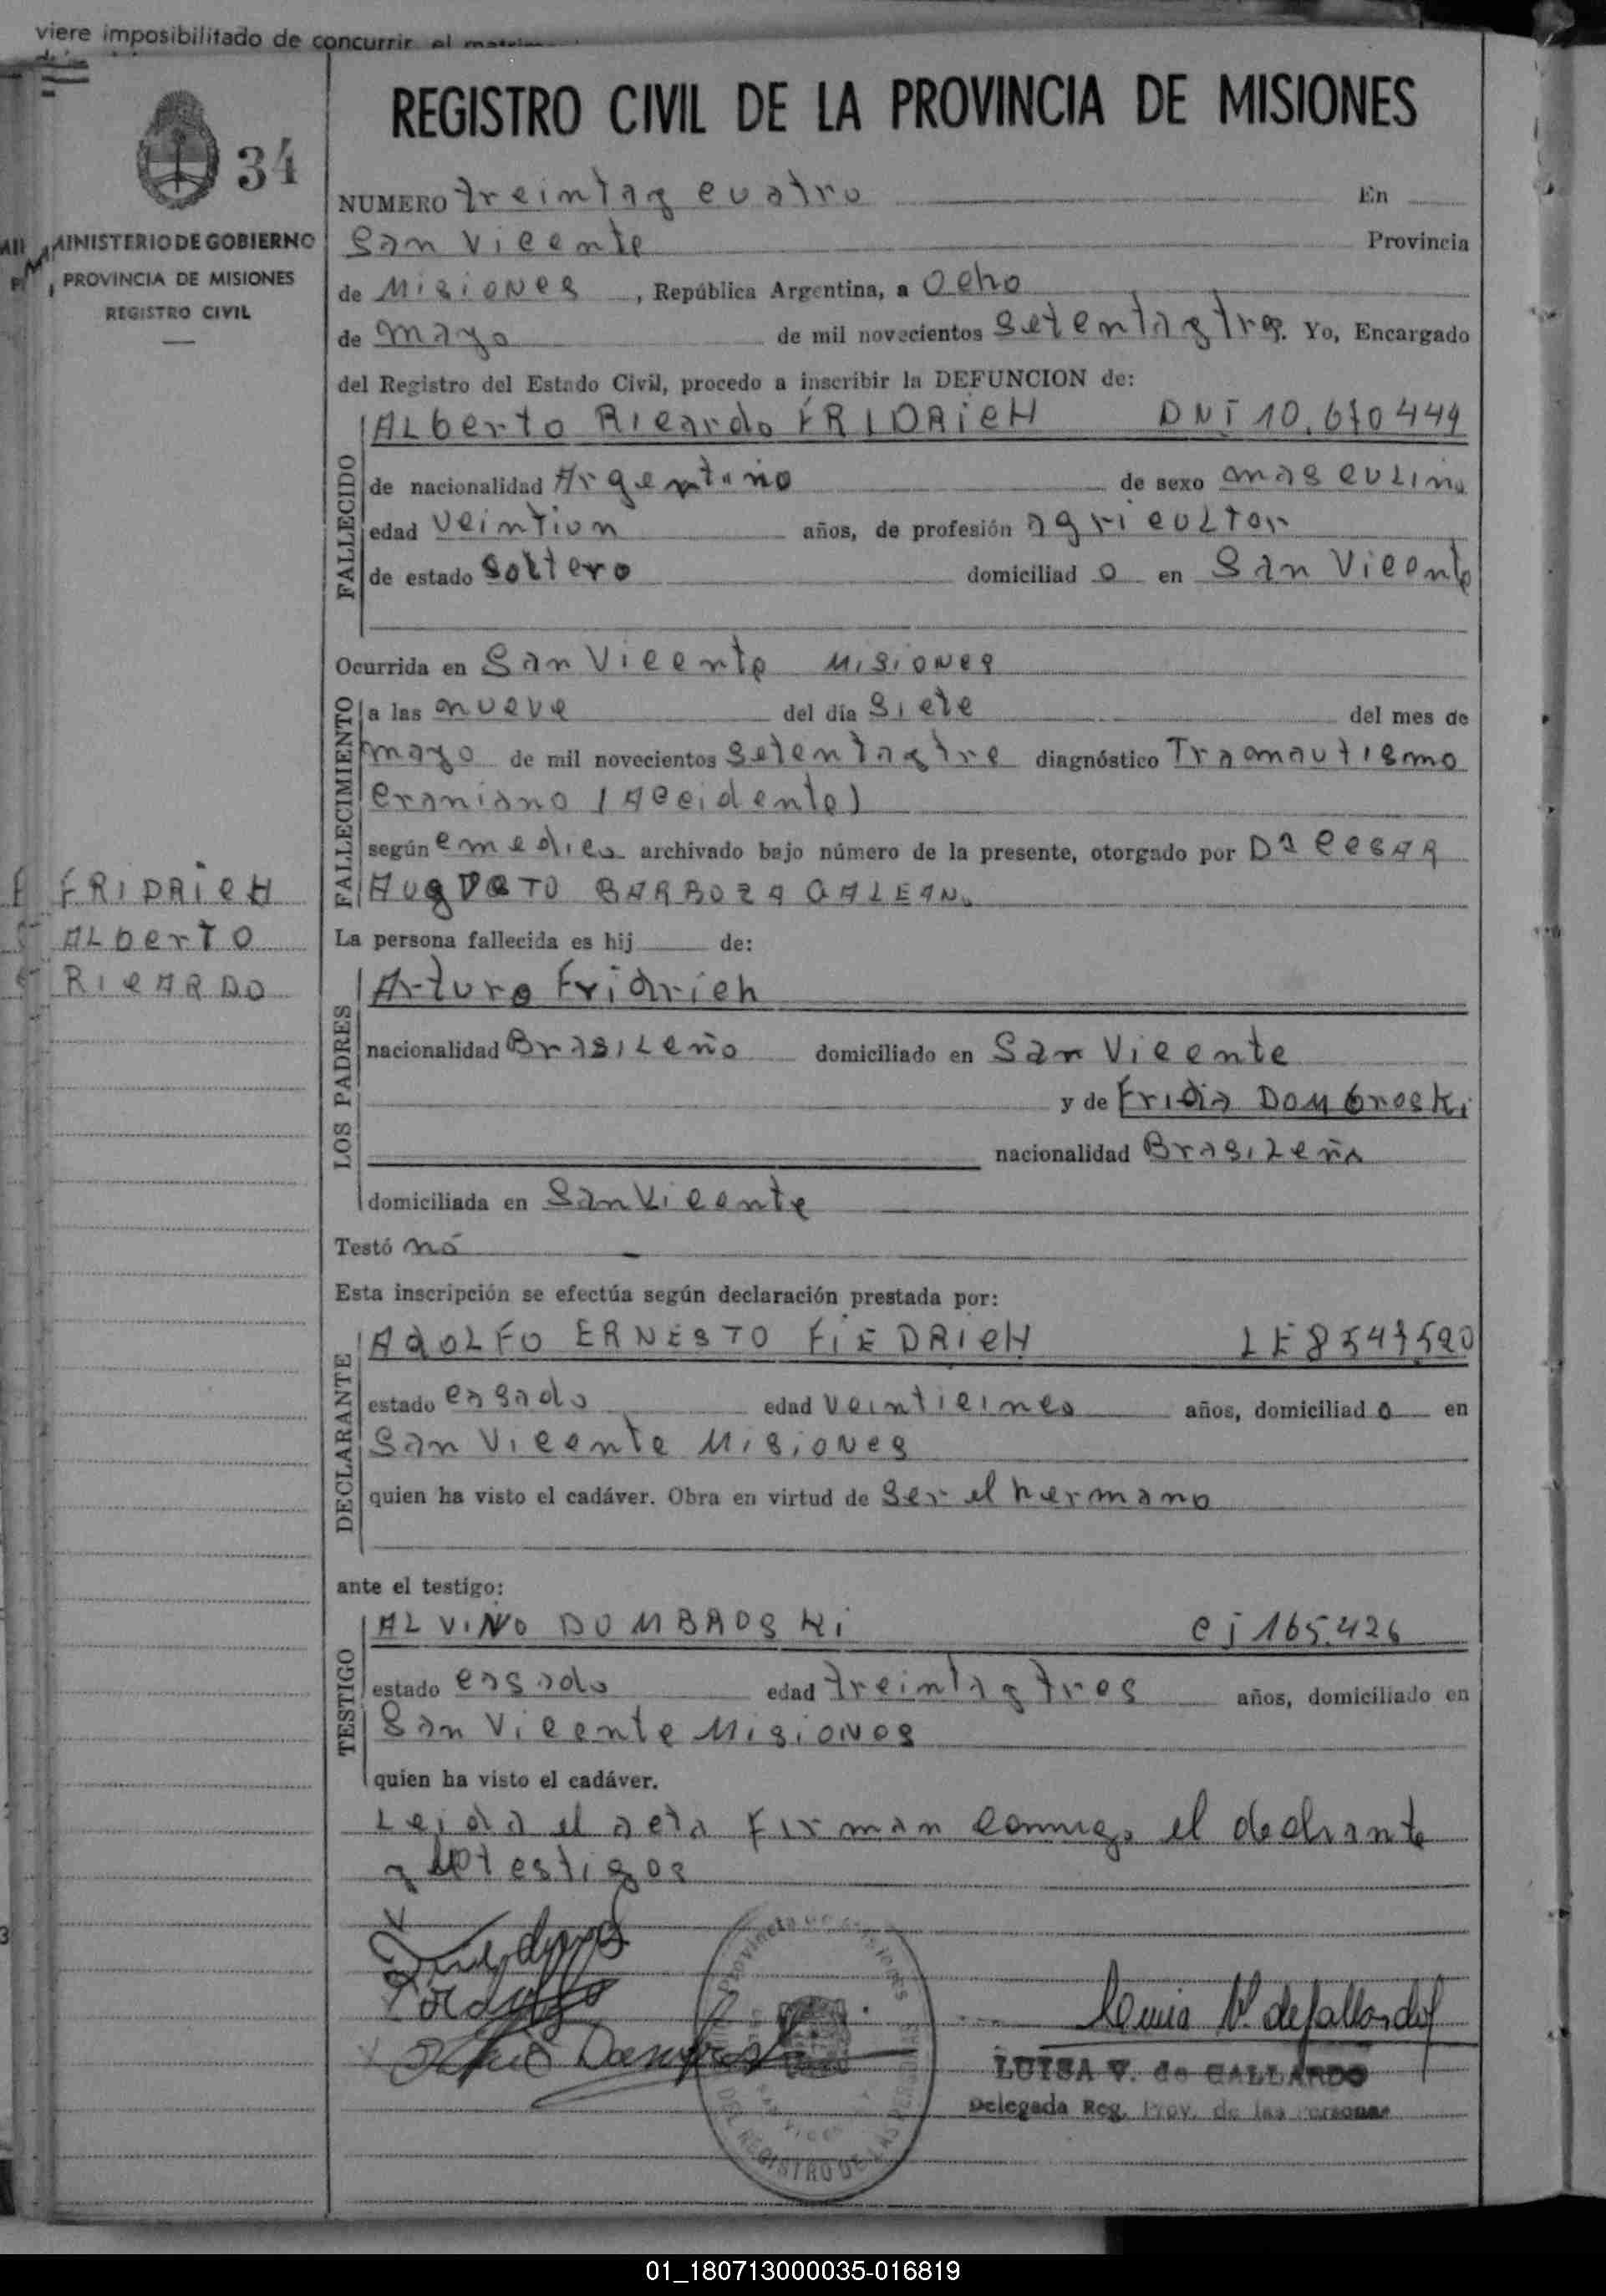 viere imposibilitado de concurrir el
34
MINISTERIO DE GOBIERNO
PROVINCIA DE MISIONES
REGISTRO CIVIL
FRIDRICH
ALberTO
RICARDO
REGISTRO CIVIL DE LA PROVINCIA DE MISIONES
NUMERO treintay cuatro En
San Vicente Provincia
de Misiones, República Argentina, a Ocho
de mayo de mil novecientos setentaytres. Yo, Encargado
del Registro del Estado Civil, procedo a inscribir la DEFUNCION de:
FALLECIDO
ALberto Ricardo FRIDRicH DNI 10.670449
de nacionalidad Argentino de sexo masculino
edad veintiun años, de profesión agricultor
de estado soltero domiciliad o en San Vicente
Ocurrida en San Vicente Misiones
FALLECIMIENTO
a las nueve del día siete del mes de
mayo de mil novecientos setentaytre diagnóstico Tramautismo
craniano (Accidente)
según cmedico archivado bajo número de la presente, otorgado por Dº CESAR
AUGUSTO BARBOZA GALEANo
La persona fallecida es hij de:
LOS PADRES
Arturo Fridrich
nacionalidad Brasileño domiciliado en San Vicente
y de Frida Dombroski
nacionalidad Brasileña
domiciliada en San Vicente
Testó nó
Esta inscripción se efectúa según declaración prestada por:
DECLARANTE
ADOLFO ERNESTO FiEDRicH LE 8547520
estado casado edad veinticinco años, domiciliad o en
San Vicente Misiones
quien ha visto el cadáver. Obra en virtud de ser el hermano
ante el testigo:
TESTIGO
ALViNO DOMBROSKi ci 165.426
estado casado edad treintaytres años, domiciliado en
San Vicente Misiones
quien ha visto el cadáver.
Leida el acta firman conmigo el declarante
y testigos
Luisa V. de Gallardo
LUISA V. de GALLARDO
Delegada Reg. Prov. de las Personas
01_180713000035-016819